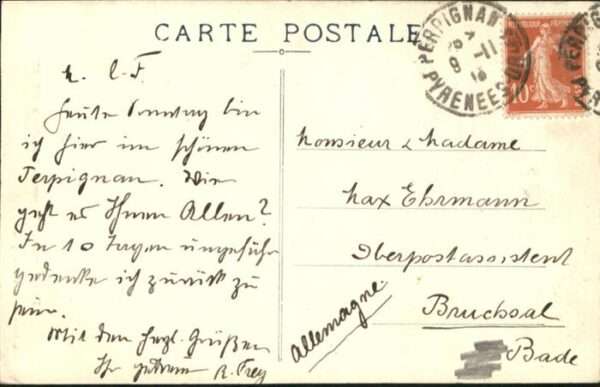 CARTE POSTALE
PERPIGNAN
PYRENEES
10
L. C. F.
Heute Sonntag bin
ich hier im schönen
Perpignan. Wie
geht es Ihnen Allen?
In 10 Tagen ungefähr
gedenke ich zurück zu
sein.
Mit den herzl. Grüßen
Ihr getreuer R. Frey
Monsieur & Madame
Max Ehrmann
Oberpostassistent
Bruchsal
Bade
Allemagne